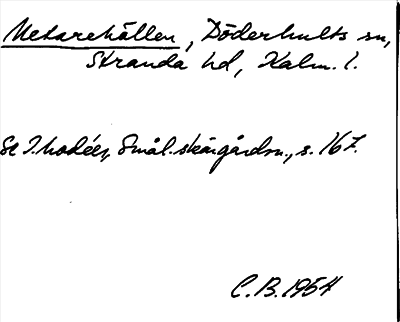 Metarehällen, Döderhults sn,
Stranda hd, Kalm. l.
Se I. Modéer, Smål. skärgårdsn., s. 167.
C.B. 1954